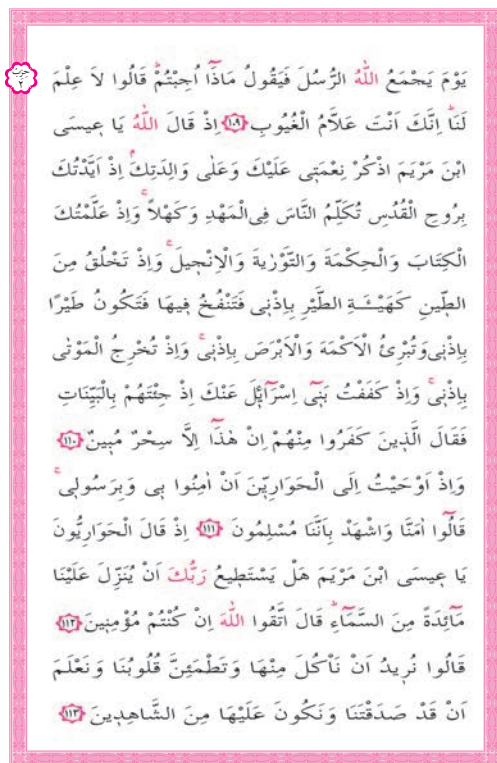 حزب
٢
يَوْمَ يَجْمَعُ اللّٰهُ الرُّسُلَ فَيَقُولُ مَاذَٓا اُجِبْتُمْۜ قَالُوا لَا عِلْمَ
لَنَاۜ اِنَّكَ اَنْتَ عَلَّامُ الْغُيُوبِ ﴿١٠٩﴾ اِذْ قَالَ اللّٰهُ يَا عٖيسَى
ابْنَ مَرْيَمَ اذْكُرْ نِعْمَتٖى عَلَيْكَ وَعَلٰى وَالِدَتِكَۢ اِذْ اَيَّدْتُكَ
بِرُوحِ الْقُدُسِ تُكَلِّمُ النَّاسَ فِى الْمَهْدِ وَكَهْلًاۚ وَاِذْ عَلَّمْتُكَ
الْكِتَابَ وَالْحِكْمَةَ وَالتَّوْرٰيةَ وَالْاِنْجٖيلَۚ وَاِذْ تَخْلُقُ مِنَ
الطّٖينِ كَهَيْـَٔةِ الطَّيْرِ بِاِذْنٖى فَتَنْفُخُ فٖيهَا فَتَكُونُ طَيْرًا
بِاِذْنٖى وَتُبْرِئُ الْاَكْمَهَ وَالْاَبْرَصَ بِاِذْنٖىۚ وَاِذْ تُخْرِجُ الْمَوْتٰى
بِاِذْنٖىۚ وَاِذْ كَفَفْتُ بَنٖٓى اِسْرَٓائٖلَ عَنْكَ اِذْ جِئْتَهُمْ بِالْبَيِّنَاتِ
فَقَالَ الَّذٖينَ كَفَرُوا مِنْهُمْ اِنْ هٰذَٓا اِلَّا سِحْرٌ مُبٖينٌ ﴿١١٠﴾
وَاِذْ اَوْحَيْتُ اِلَى الْحَوَارِيّٖنَ اَنْ اٰمِنُوا بٖى وَبِرَسُولٖىۚ
قَالُٓوا اٰمَنَّا وَاشْهَدْ بِاَنَّنَا مُسْلِمُونَ ﴿١١١﴾ اِذْ قَالَ الْحَوَارِيُّونَ
يَا عٖيسَى ابْنَ مَرْيَمَ هَلْ يَسْتَطٖيعُ رَبُّكَ اَنْ يُنَزِّلَ عَلَيْنَا
مَٓائِدَةً مِنَ السَّمَٓاءِۜ قَالَ اتَّقُوا اللّٰهَ اِنْ كُنْتُمْ مُؤْمِنٖينَ ﴿١١٢﴾
قَالُوا نُرٖيدُ اَنْ نَأْكُلَ مِنْهَا وَتَطْمَئِنَّ قُلُوبُنَا وَنَعْلَمَ
اَنْ قَدْ صَدَقْتَنَا وَنَكُونَ عَلَيْهَا مِنَ الشَّاهِدٖينَ ﴿١١٣﴾